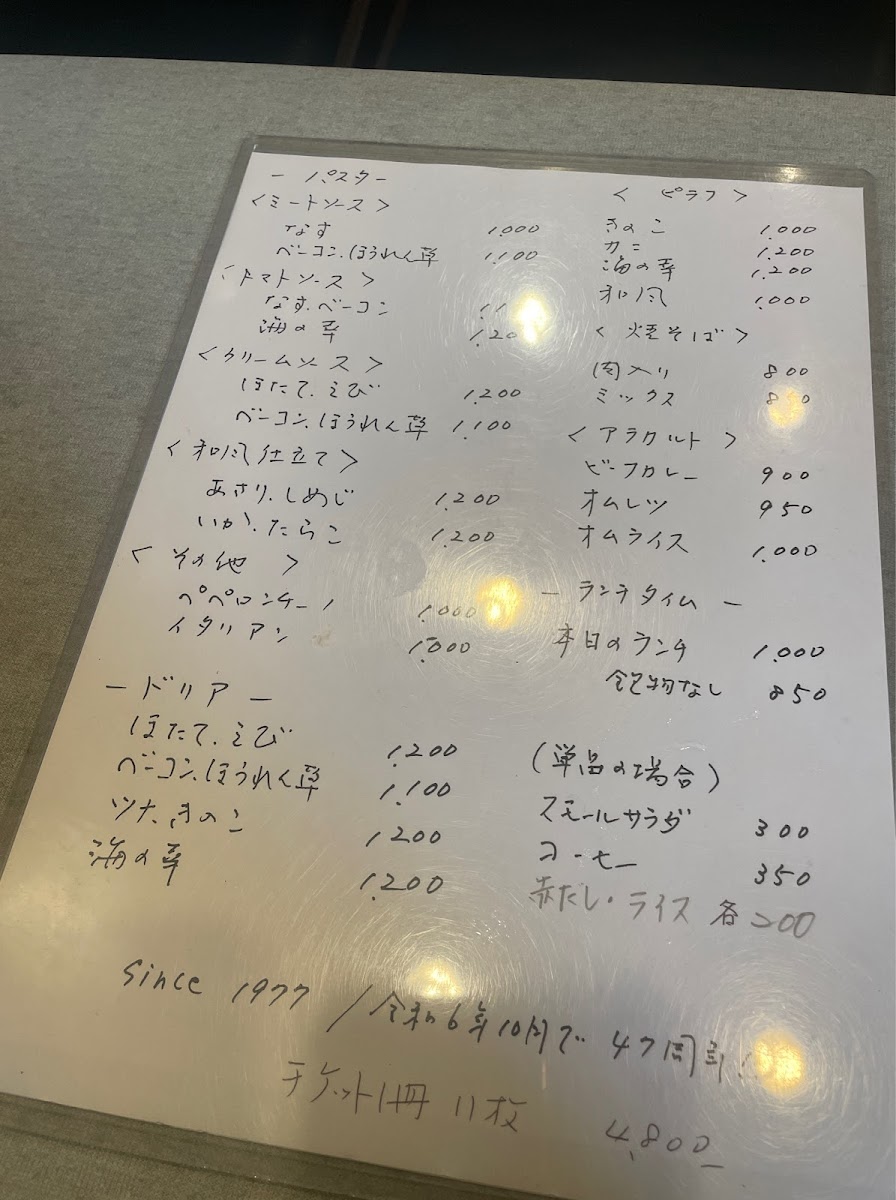 ー パスタ ー
< ミートソース >
なす 1.000
ベーコン.ほうれん草 1.100
< トマトソース >
なす.ベーコン
海の幸 1.20
< クリームソース >
ほたて.えび 1.200
ベーコン.ほうれん草 1.100
< 和風仕立て >
あさり.しめじ 1.200
いか.たらこ 1.200
< その他 >
ペペロンチーノ 1.000
イタリアン 1.000
ー ドリア ー
ほたて.えび 1.200
ベーコン.ほうれん草 1.100
ツナ.きのこ 1.200
海の幸 1.200
< ピラフ >
きのこ 1.000
カニ 1.200
海の幸 1.200
和風 1.000
< 焼そば >
肉入り 800
ミックス
< アラカルト >
ビーフカレー 900
オムレツ 950
オムライス 1.000
ー ランチタイム ー
本日のランチ 1.000
飲物なし 850
(単品の場合)
スモールサラダ 300
コーヒー 350
赤だし・ライス 各200
Since 1977 / 令和6年10月で 47周年!
チケット1冊 11枚 4,800